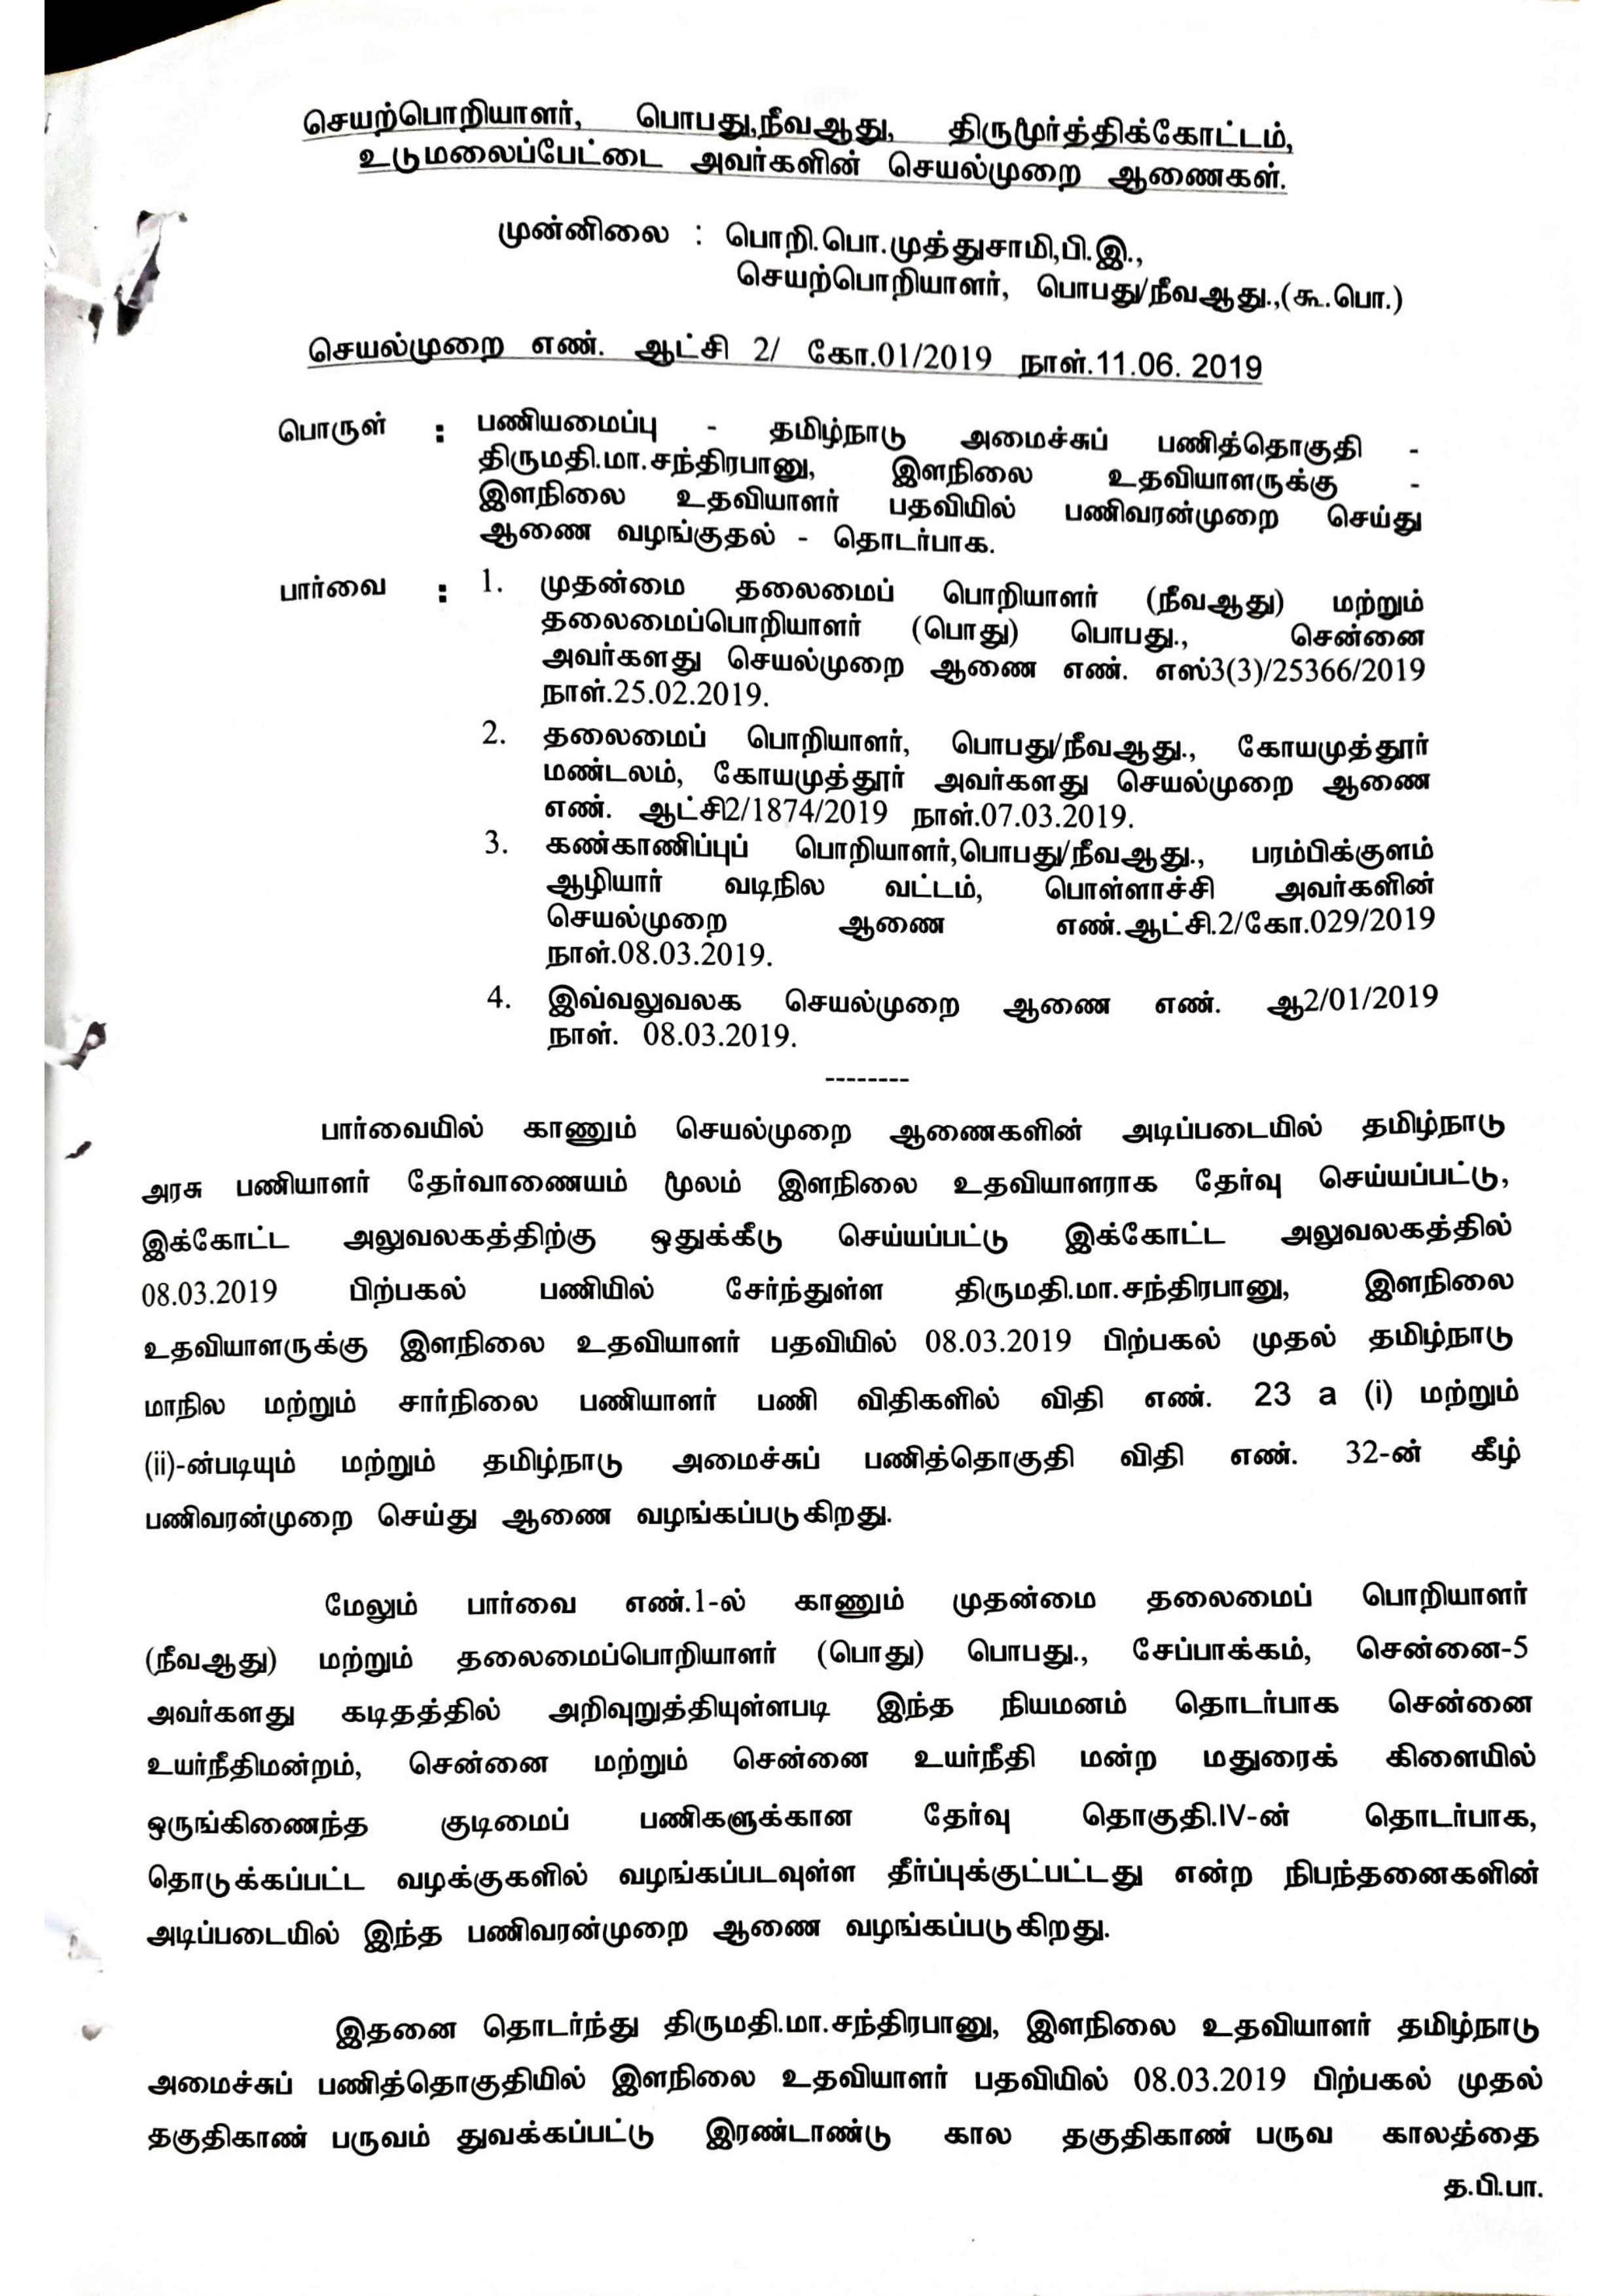 செயற்பொறியாளர், பொபது,நீவஆது, திருமூர்த்திக்கோட்டம்,
உடுமலைப்பேட்டை அவர்களின் செயல்முறை ஆணைகள்.
முன்னிலை : பொறி.பொ.முத்துசாமி,பி.இ.,
செயற்பொறியாளர், பொபது/நீவஆது.,(கூ.பொ.)
செயல்முறை எண். ஆட்சி 2/ கோ.01/2019 நாள்.11.06. 2019
பொருள் : பணியமைப்பு - தமிழ்நாடு அமைச்சுப் பணித்தொகுதி -
திருமதி.மா.சந்திரபானு, இளநிலை உதவியாளருக்கு -
இளநிலை உதவியாளர் பதவியில் பணிவரன்முறை செய்து
ஆணை வழங்குதல் - தொடர்பாக.
பார்வை : 1. முதன்மை தலைமைப் பொறியாளர் (நீவஆது) மற்றும்
தலைமைப்பொறியாளர் (பொது) பொபது., சென்னை
அவர்களது செயல்முறை ஆணை எண். எஸ்3(3)/25366/2019
நாள்.25.02.2019.
2. தலைமைப் பொறியாளர், பொபது/நீவஆது., கோயமுத்தூர்
மண்டலம், கோயமுத்தூர் அவர்களது செயல்முறை ஆணை
எண். ஆட்சி2/1874/2019 நாள்.07.03.2019.
3. கண்காணிப்புப் பொறியாளர்,பொபது/நீவஆது., பரம்பிக்குளம்
ஆழியார் வடிநில வட்டம், பொள்ளாச்சி அவர்களின்
செயல்முறை ஆணை எண்.ஆட்சி.2/கோ.029/2019
நாள்.08.03.2019.
4. இவ்வலுவலக செயல்முறை ஆணை எண். ஆ2/01/2019
நாள். 08.03.2019.
--------
பார்வையில் காணும் செயல்முறை ஆணைகளின் அடிப்படையில் தமிழ்நாடு
அரசு பணியாளர் தேர்வாணையம் மூலம் இளநிலை உதவியாளராக தேர்வு செய்யப்பட்டு,
இக்கோட்ட அலுவலகத்திற்கு ஒதுக்கீடு செய்யப்பட்டு இக்கோட்ட அலுவலகத்தில்
08.03.2019 பிற்பகல் பணியில் சேர்ந்துள்ள திருமதி.மா.சந்திரபானு, இளநிலை
உதவியாளருக்கு இளநிலை உதவியாளர் பதவியில் 08.03.2019 பிற்பகல் முதல் தமிழ்நாடு
மாநில மற்றும் சார்நிலை பணியாளர் பணி விதிகளில் விதி எண். 23 a (i) மற்றும்
(ii)-ன்படியும் மற்றும் தமிழ்நாடு அமைச்சுப் பணித்தொகுதி விதி எண். 32-ன் கீழ்
பணிவரன்முறை செய்து ஆணை வழங்கப்படுகிறது.
மேலும் பார்வை எண்.1-ல் காணும் முதன்மை தலைமைப் பொறியாளர்
(நீவஆது) மற்றும் தலைமைப்பொறியாளர் (பொது) பொபது., சேப்பாக்கம், சென்னை-5
அவர்களது கடிதத்தில் அறிவுறுத்தியுள்ளபடி இந்த நியமனம் தொடர்பாக சென்னை
உயர்நீதிமன்றம், சென்னை மற்றும் சென்னை உயர்நீதி மன்ற மதுரைக் கிளையில்
ஒருங்கிணைந்த குடிமைப் பணிகளுக்கான தேர்வு தொகுதி.IV-ன் தொடர்பாக,
தொடுக்கப்பட்ட வழக்குகளில் வழங்கப்படவுள்ள தீர்ப்புக்குட்பட்டது என்ற நிபந்தனைகளின்
அடிப்படையில் இந்த பணிவரன்முறை ஆணை வழங்கப்படுகிறது.
இதனை தொடர்ந்து திருமதி.மா.சந்திரபானு, இளநிலை உதவியாளர் தமிழ்நாடு
அமைச்சுப் பணித்தொகுதியில் இளநிலை உதவியாளர் பதவியில் 08.03.2019 பிற்பகல் முதல்
தகுதிகாண் பருவம் துவக்கப்பட்டு இரண்டாண்டு கால தகுதிகாண் பருவ காலத்தை
த.பி.பா.